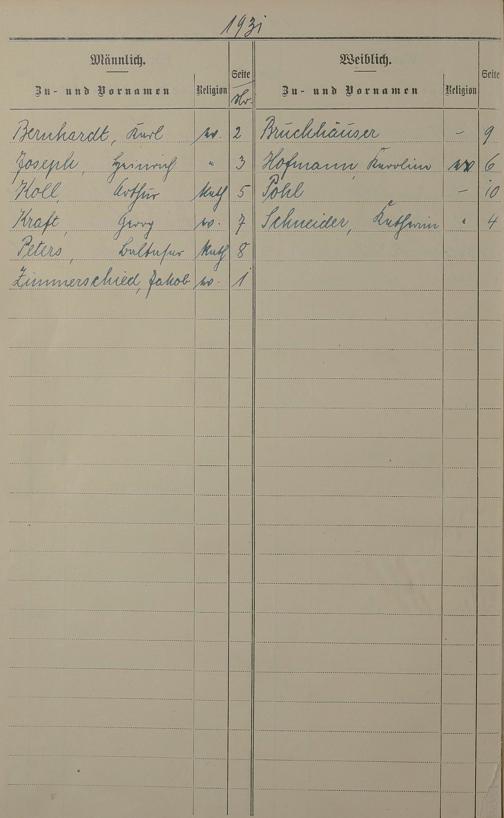 1931
Männlich. Weiblich.
Zu- und Vornamen Religion Seite Nr. Zu- und Vornamen Religion Seite
Bernhardt, Karl ev. 2 Bruchhäuser – 9
Joseph, Heinrich " 3 Hofmann, Karoline ev. 6
Koll, Arthur Kath 5 Pohl – 10
Kraft, Georg ev. 7 Schneider, Katharina " 4
Peters, Balthasar Kath 8
Zimmerschied, Jakob ev. 1